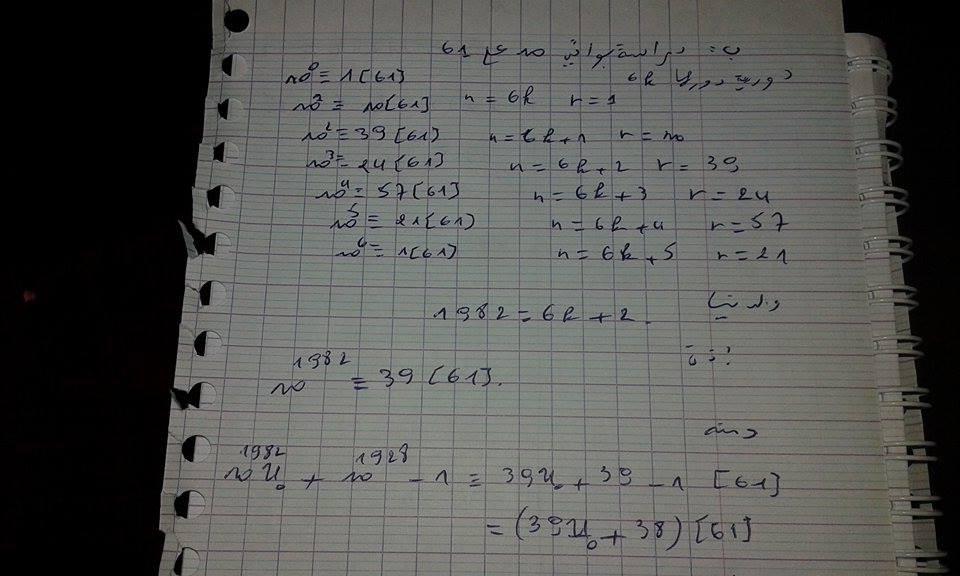 ب: دراسة بواقي 10 على 61
10⁰ ≡ 1[61]
دورية دورها 6k
10¹ ≡ 10[61] n = 6k r = 1
10² ≡ 39[61] n = 6k+1 r = 10
10³ = 24[61] n = 6k+2 r = 39
10⁴ = 57[61] n = 6k+3 r = 24
10⁵ ≡ 21[61] n = 6k+4 r = 57
10⁶ = 1[61] n = 6k+5 r = 21
ولدينا 1982 = 6k+2.
إذن
10¹⁹⁸² ≡ 39[61].
ومنه
10¹⁹⁸² U₀ + 10¹⁹²⁸ - 1 ≡ 39U₀ + 39 - 1 [61]
≡ (39U₀ + 38) [61]